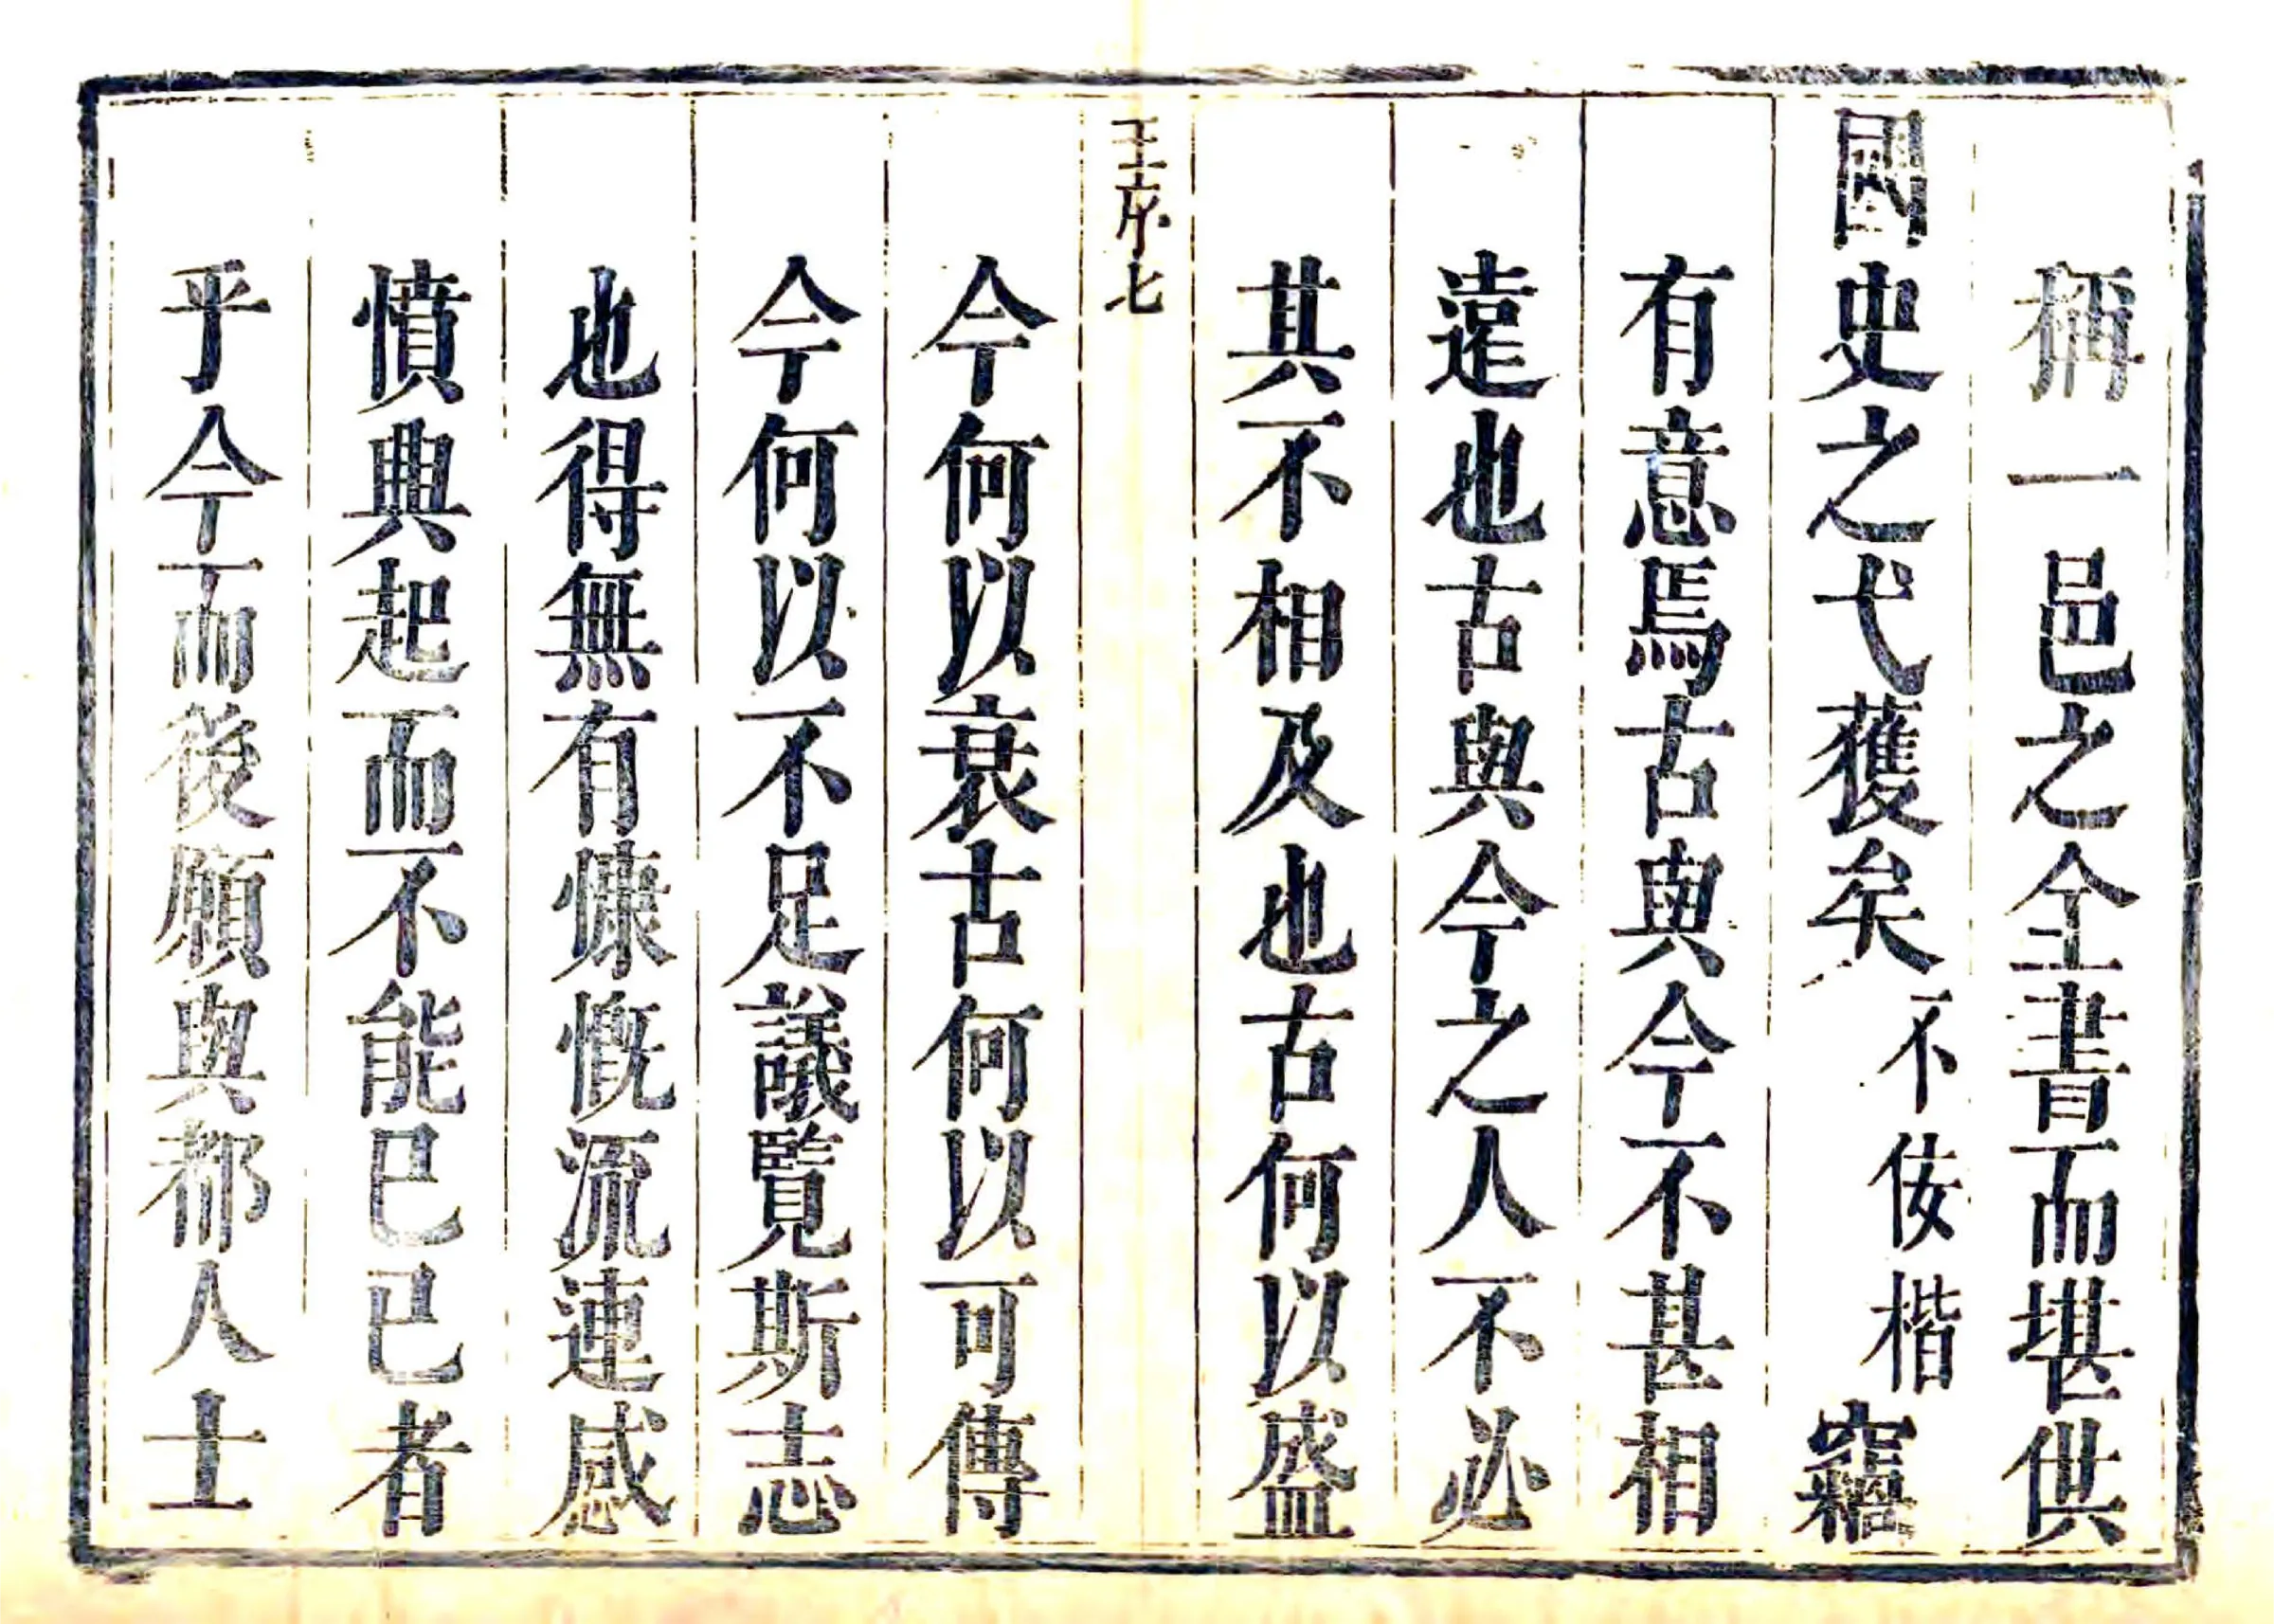 稱一邑之全書而堪供
國史之弋獲矣不佞楷竊
有意焉古與今不甚相
遠也古與今之人不必
其不相及也古何以盛
王序 七
今何以衰古何以可傳
今何以不足議覽斯志
也得無有慷慨流連感
憤興起而不能已已者
乎今而後願與都人士